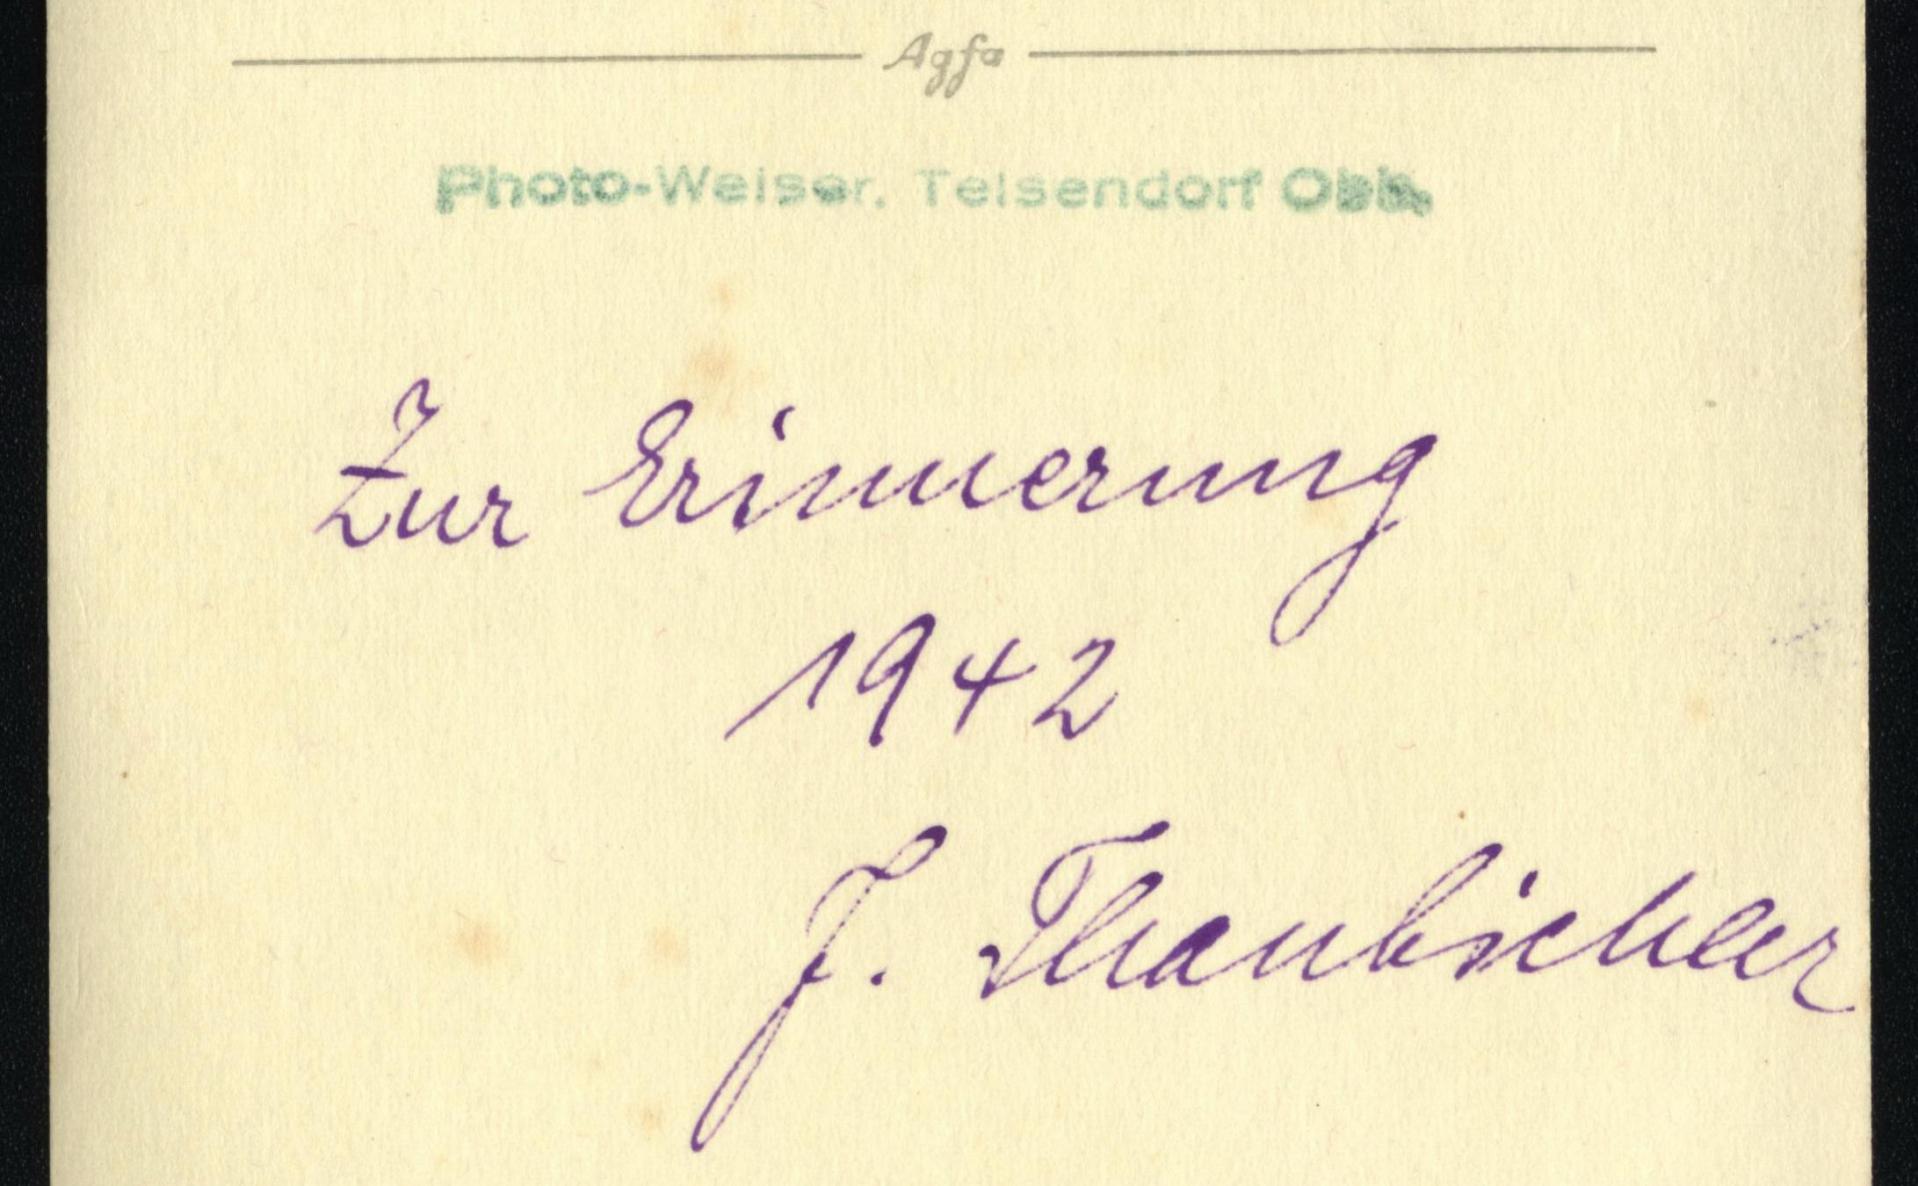 Agfa
Photo-Weiser, Teisendorf Obb.
Zur Erinnerung
1942
J. Thanbichler